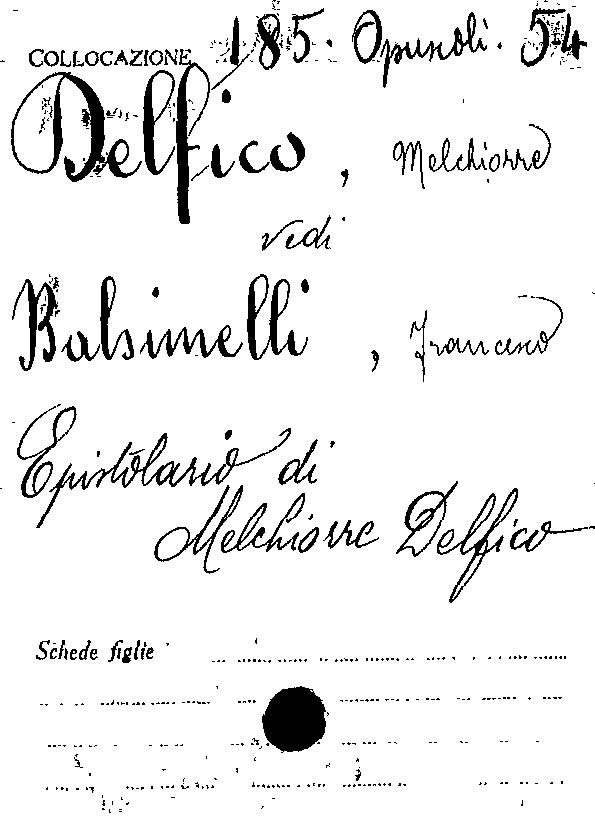 COLLOCAZIONE 185. Opuscoli. 54
Delfico, Melchiorre
vedi
Balsimelli, Francesco
Epistolario di
Melchiorre Delfico
Schede figlie